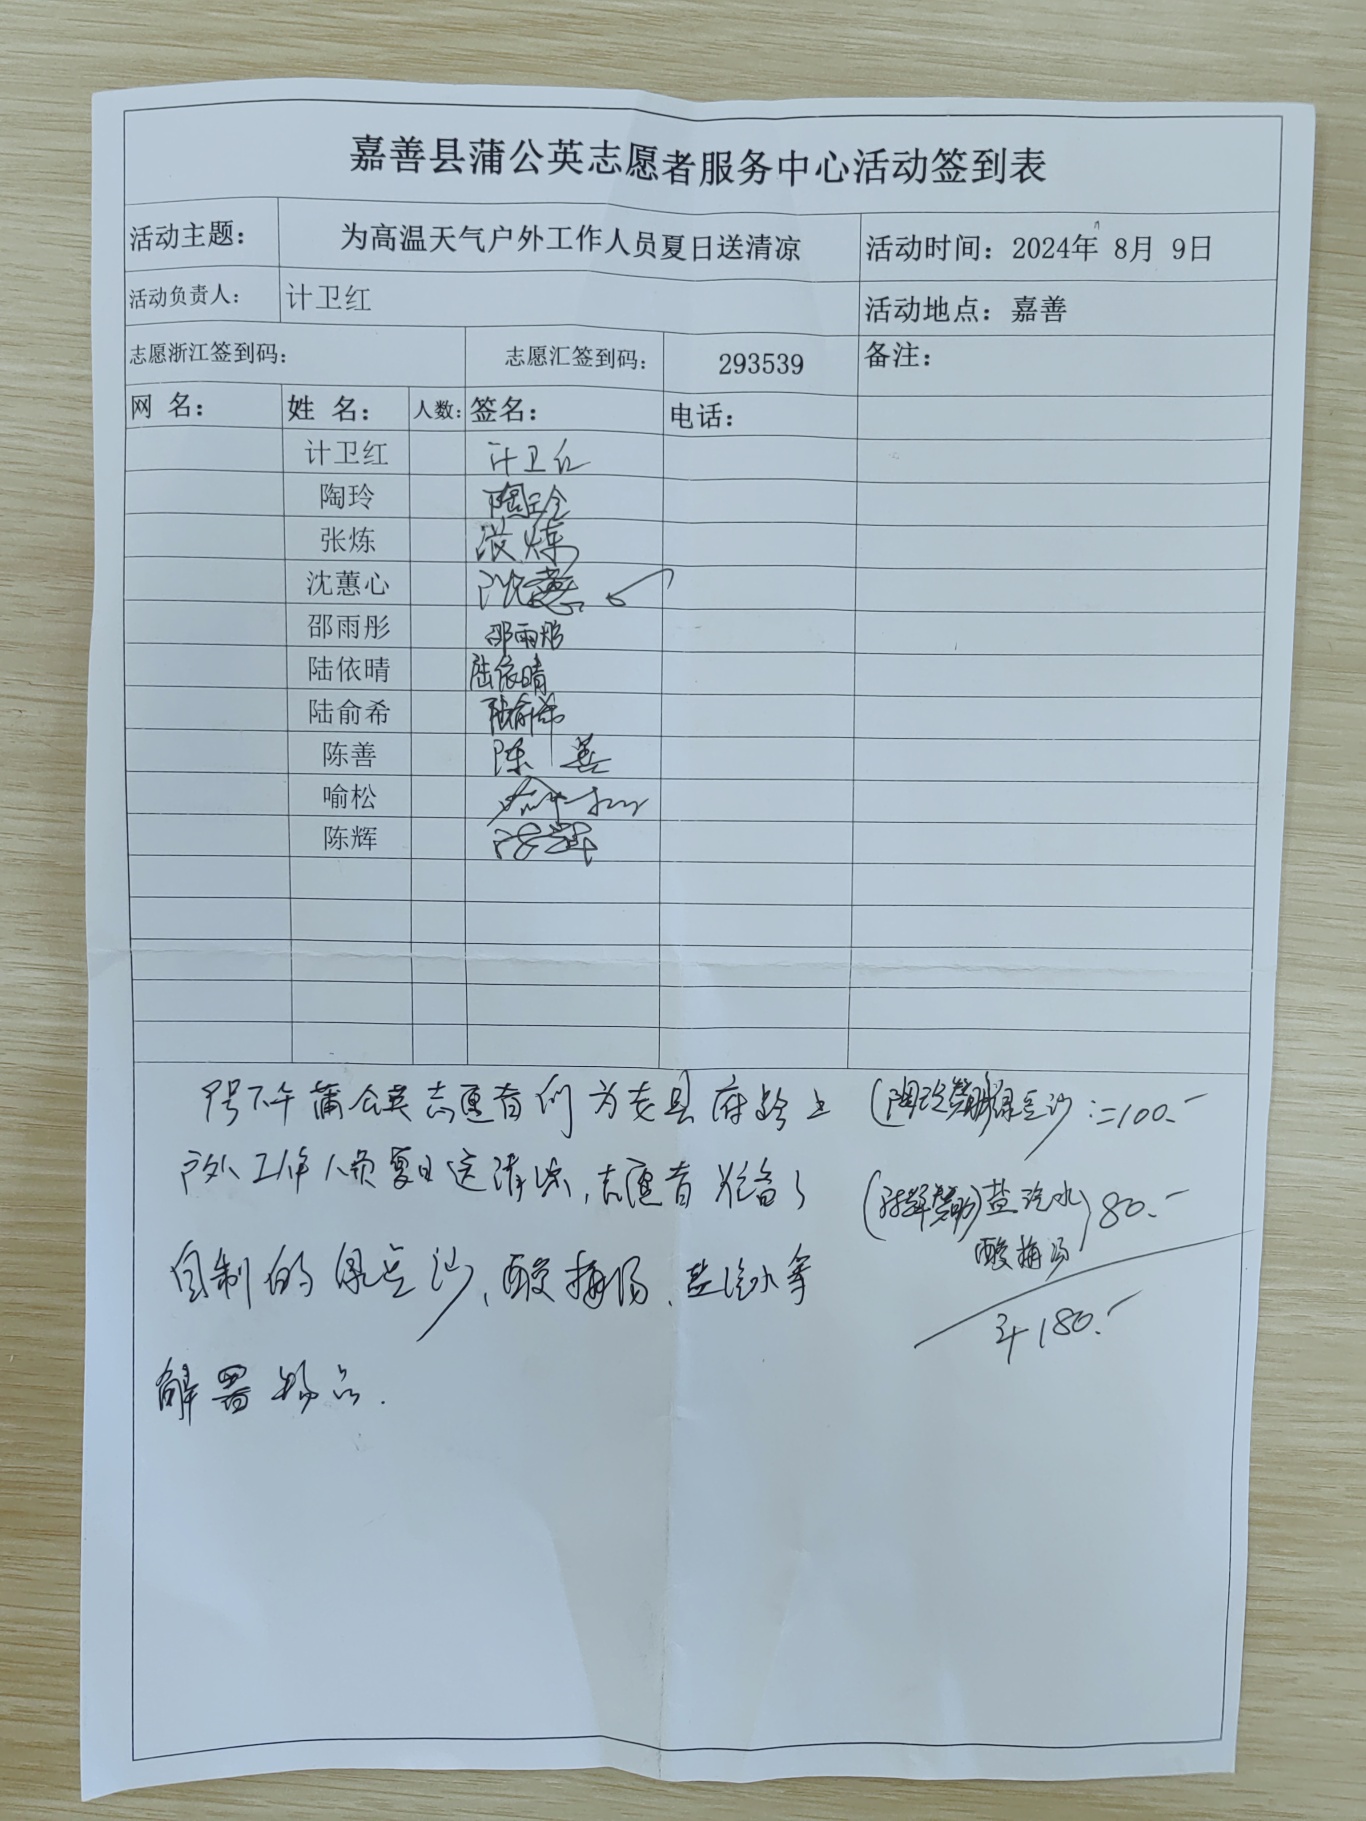 嘉善县蒲公英志愿者服务中心活动签到表
活动主题： 为高温天气户外工作人员夏日送清凉 活动时间：2024年 8月 9日
活动负责人： 计卫红 活动地点：嘉善
志愿浙江签到码： 志愿汇签到码： 293539 备注：
网 名： 姓 名： 人数： 签名： 电话：
计卫红 计卫红
陶玲 陶玲
张炼 张炼
沈蕙心 沈蕙心
邵雨彤 邵雨彤
陆依晴 陆依晴
陆俞希 陆俞希
陈善 陈善
喻松 喻松
陈辉 陈辉
下午蒲公英志愿者们为 县府路上
户外工作人员夏日送清凉，志愿者准备了
自制的绿豆沙、酸梅汤、盐汽水等
解署物品.
(陶玲赞助)绿豆沙：=100.-
(陈辉赞助)盐汽水 80.-
酸梅汤
180.-